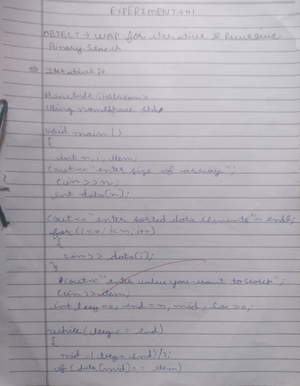 EXPERIMENT-01
OBJECT → WAP for iterative & Recursive
Binary Search.
⇒ Iterative :-
#include <iostream>
using namespace std;
void main ( )
{
int n, i, item;
cout<<"enter size of array";
cin>>n;
int data(n);
cout<<"enter sorted data elements"<<endl;
for (i=0; i<n; i++)
{
cin>> data(i);
}
cout<<"enter value you want to search";
cin>>item;
int beg=0, end=n, mid, loc=0;
while (beg<= end)
{
mid = (beg+end)/2;
if (data(mid)== item)